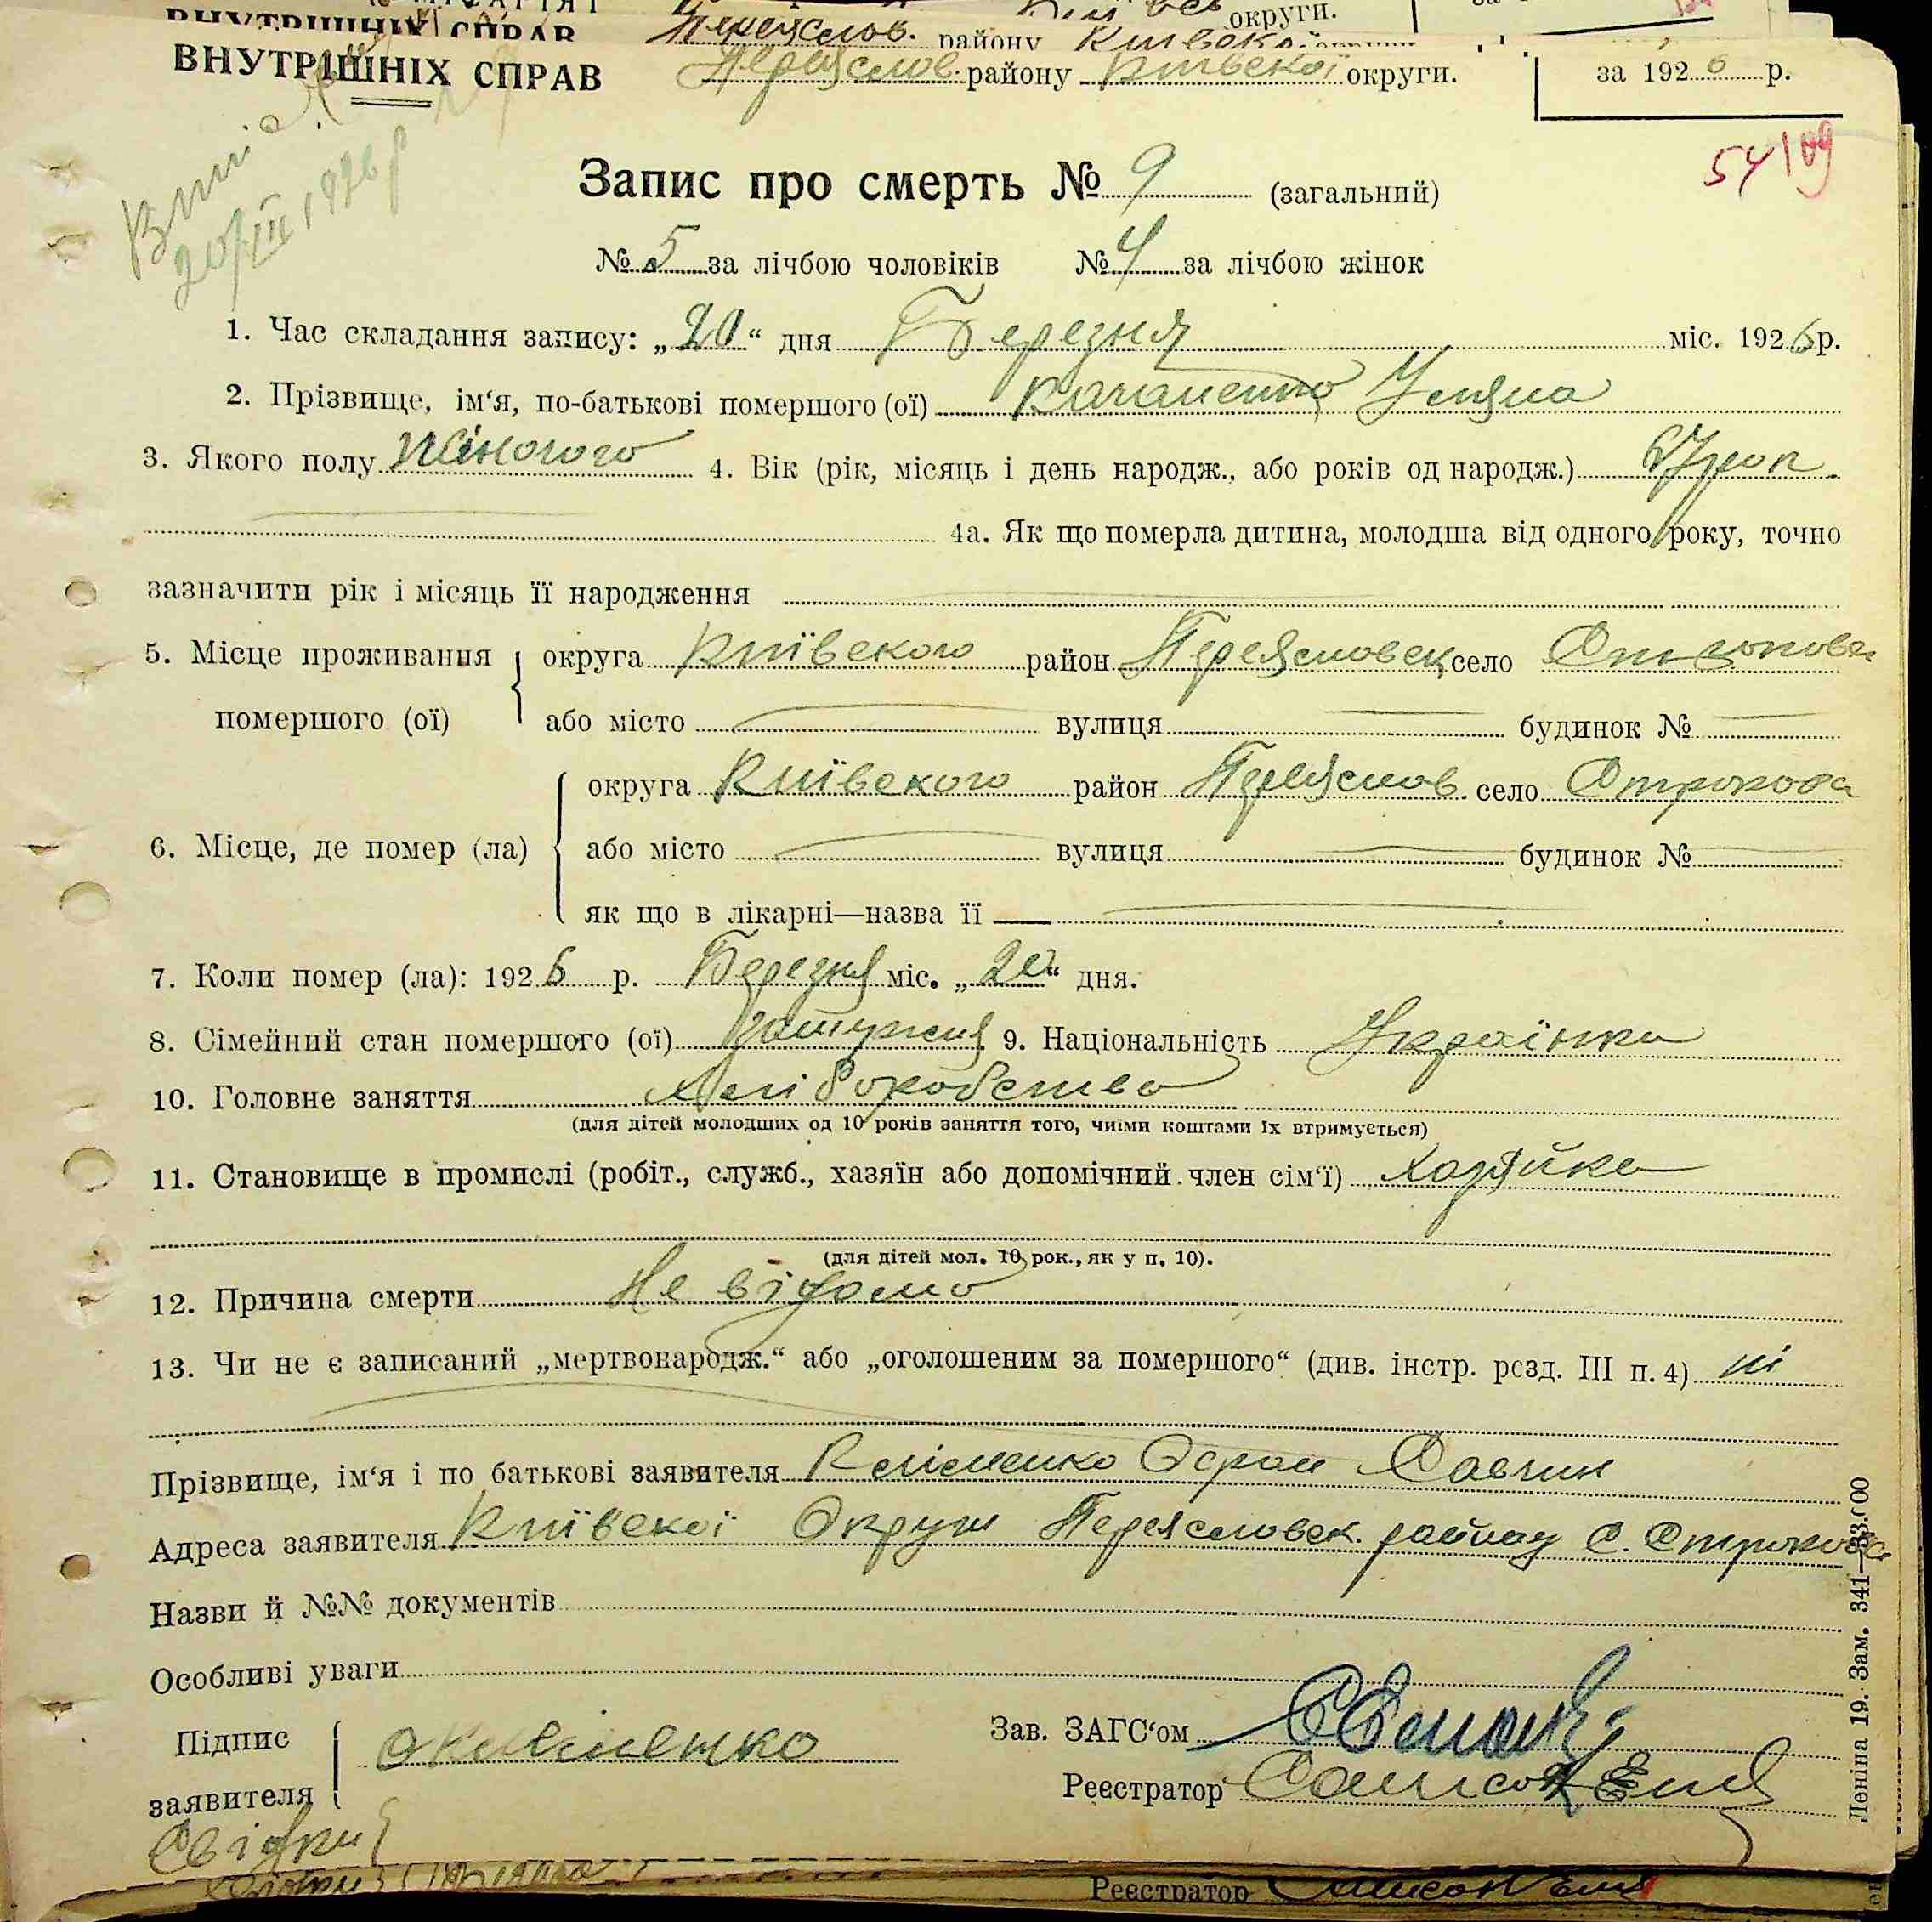 ВНУТРІШНІХ СПРАВ Переяслов. району Київської округи.
ВНУТРІШНІХ СПРАВ Переяслов. району Київської округи. за 1926 р.
20/III 1926 р
54 109
Запис про смерть № 9 (загальний)
№ 5 за лічбою чоловіків № 4 за лічбою жінок
1. Час складання запису: „20“ дня Березня міс. 1926 р.
2. Прізвище, ім‘я, по-батькові помершого (ої) Качаненко Уляна
3. Якого полу Жіночого 4. Вік (рік, місяць і день народж., або років од народж.) 67 рок.
4а. Як що померла дитина, молодша від одного року, точно
зазначити рік і місяць її народження
5. Місце проживання помершого (ої) округа Київского район Переясловск село Строкова
або місто вулиця будинок №
6. Місце, де помер (ла) округа Київского район Переяслов. село Строкова
або місто вулиця будинок №
як що в лікарні—назва її
7. Коли помер (ла): 1926 р. Березня міс. „20“ дня.
8. Сімейний стан помершого (ої) Замужня 9. Національність Українка
10. Головне заняття Хліборобство
(для дітей молодших од 10 років заняття того, чиїми коштами їх втримується)
11. Становище в промислі (робіт., служб., хазяїн або допомічний член сім‘ї) Хазяйка
(для дітей мол. 10 рок., як у п. 10).
12. Причина смерти Не відомо
13. Чи не є записаний „мертвонародж.“ або „оголошеним за помершого“ (див. інстр. розд. III п. 4) ні
Прізвище, ім‘я і по батькові заявителя Кліменко Савчин
Адреса заявителя Київскої Округи Переясловск. району С. Строкова
Назви й №№ документів
Особливі уваги
Підпис заявителя Зав. ЗАГС‘ом
Реєстратор Самсон
Свідки
Реєстратор Самсон
Леніна 19. Зам. 341—33.000